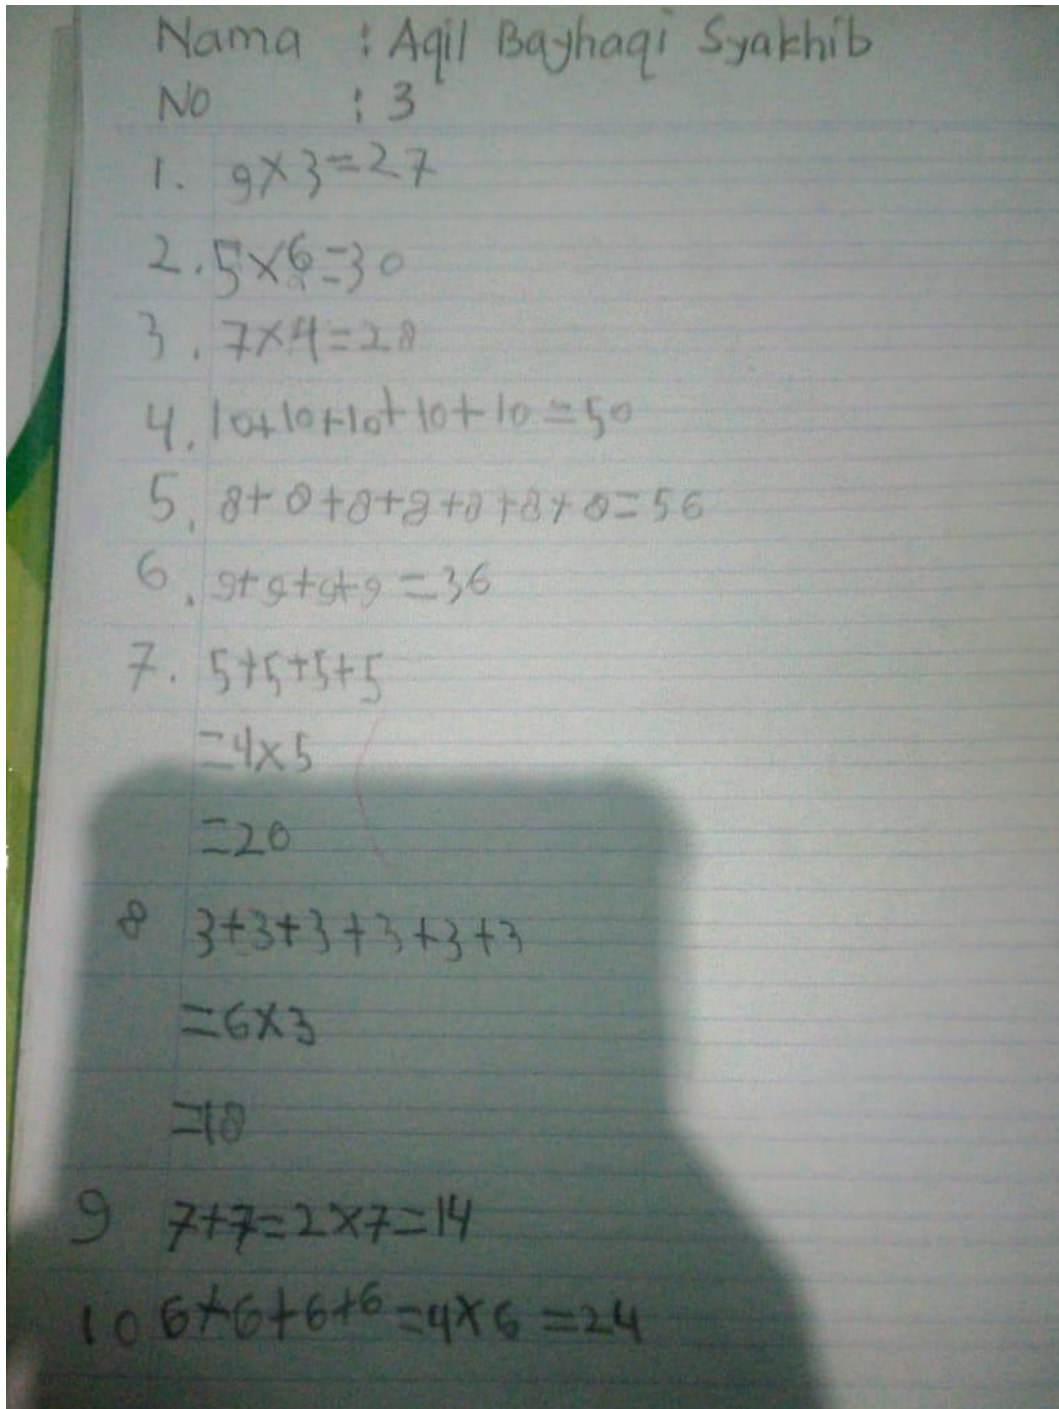 Nama : Aqil Bayhaqi Syakhib
No : 3
1. 9×3=27
2. 5×6=30
3. 7×4=28
4. 10+10+10+10+10=50
5. 8+8+8+8+8+8+8=56
6. 9+9+9+9=36
7. 5+5+5+5
=4×5
=20
8 3+3+3+3+3+3
=6×3
=18
9 7+7=2×7=14
10 6+6+6+6=4×6=24